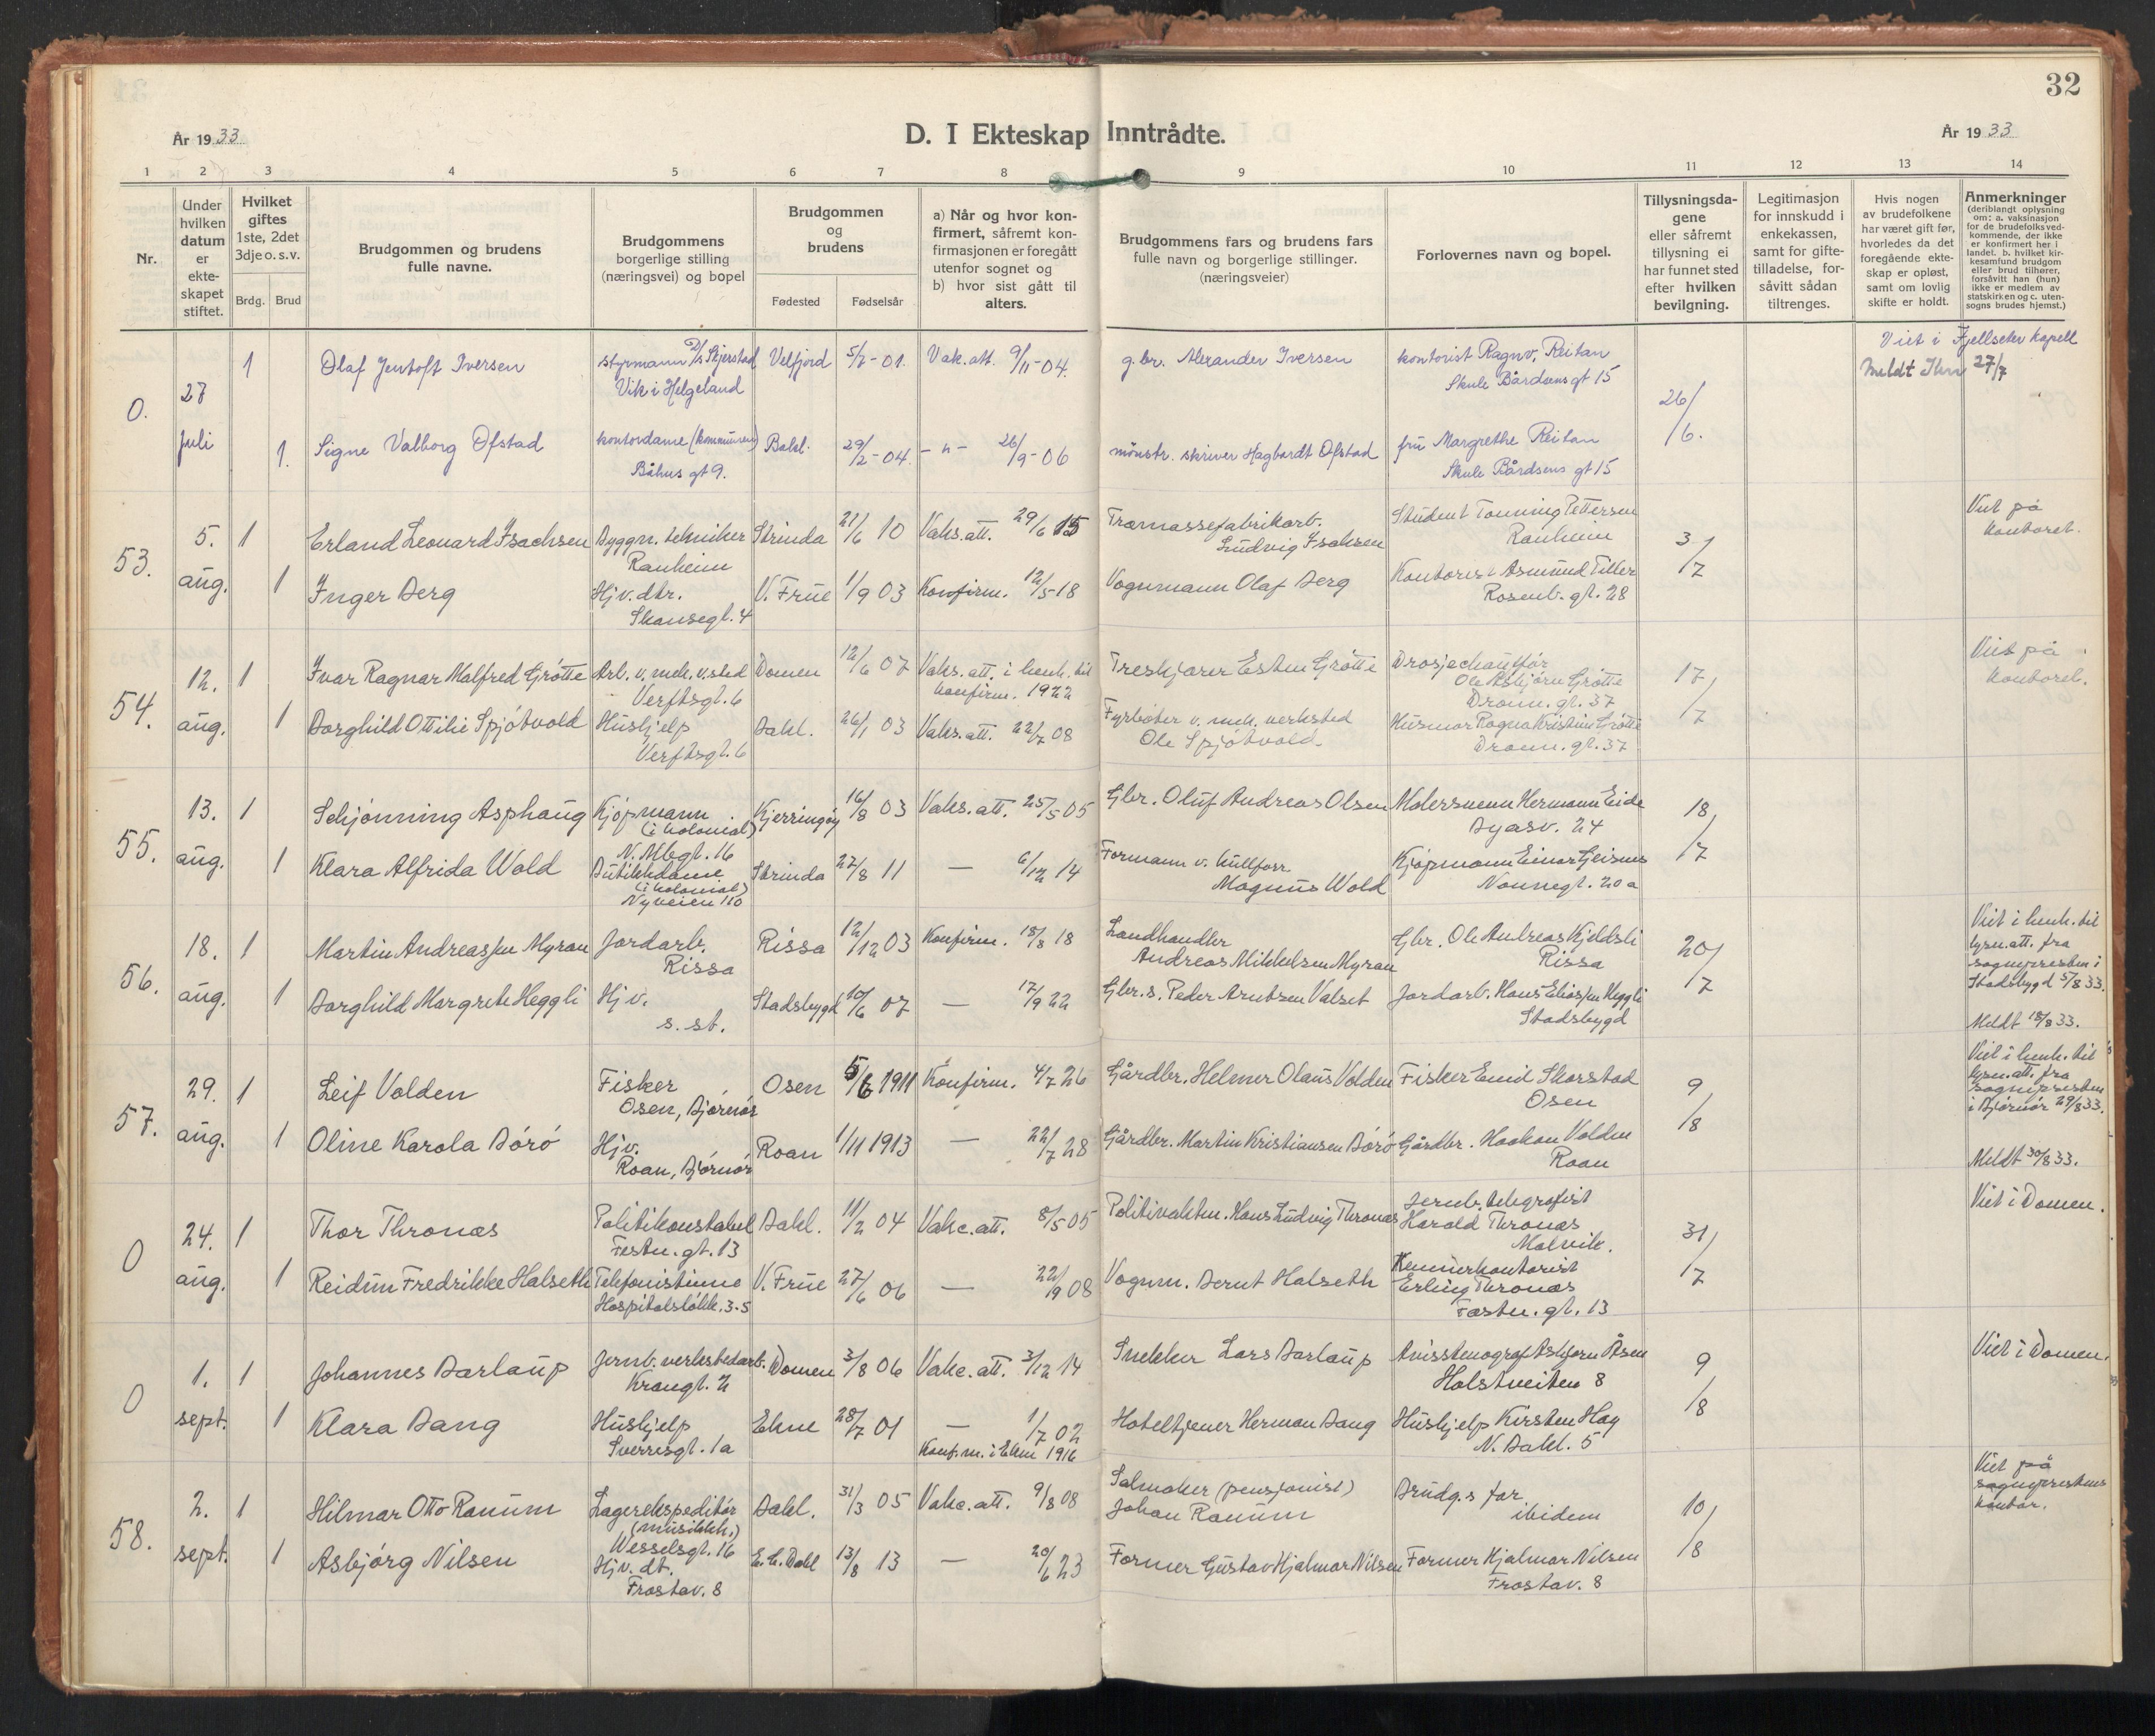 32
År 1933
D. I Ekteskap Inntrådte.
År 1933
1 2 3 4 5 6 7 8 9 10 11 12 13 14
Nr.
Under hvilken datum er ekte-skapet stiftet.
Hvilket giftes 1ste, 2det 3dje o. s. v.
Brdg. Brud
Brudgommen og brudens fulle navne.
Brudgommens borgerlige stilling (næringsvei) og bopel
Brudgommen og brudens
Fødested Fødselsår
a) Når og hvor kon-firmert, såfremt kon-firmasjonen er foregått utenfor sognet og b) hvor sist gått til alters.
Brudgommens fars og brudens fars fulle navn og borgerlige stillinger. (næringsveier)
Forlovernes navn og bopel.
Tillysningsda-gene eller såfremt tillysning ei har funnet sted efter hvilken bevilgning.
Legitimasjon for innskudd i enkekassen, samt for gifte-tilladelse, for-såvitt sådan tiltrenges.
Hvis nogen av brudefolkene har været gift før, hvorledes da det foregående ekte-skap er opløst, samt om lovlig skifte er holdt.
Anmerkninger (deriblandt oplysning om: a. vaksinasjon for de brudefolksved-kommende, der ikke er konfirmert her i landet. b. hvilket kir-kesamfund brudgom eller brud tilhører, forsåvitt han (hun) ikke er medlem av statskirken og c. uten-sogns brudes hjemst.)
0. 27 juli
1 Olaf Jentoft Iversen styrmann D/s Skjerstad Velfjord 5/7-01. Vak.att. 9/11-04. g.br. Alexander Iversen kontorist Ragnv. Reitan
Vik i Helgeland Skule Bårdsens gt 15
Viet i Fjellseter kapell
27/7
26/6.
1. Signe Valborg Øfstad kontordame (kommunen) Bakl. 29/2-04. -"- 26/9-06 mønstr. skriver Hagbardt Øfstad fru Margrethe Reitan
Båhus gt 9. Skule Bårdsens gt 15
53. 5. aug.
1 Erland Leonard Isachsen Byggn. tekniker Strinda 21/6 10 Vaks.att. 29/6 15 Tremassefabrikarb. Student Tonning Pettersen
Ranheim Ludvig Isaksen Ranheim
3/7
Viet på kontoret.
1 Inger Berg Hjv. dtr. V. Frue 1/9 03 Konfirm. 12/5 18 Vognmann Olaf Berg Kontorist Asmund Tiller
Skansegt. 4 Rosenb. gt. 28
54. 12. aug.
1 Ivar Ragnar Malfred Grøtte Arb. v. mek. v.sted Domen 12/6 07 Vaks.att. i henh. til Treskjærer Esten Grøtte Drosjechauffør
Verftsgt. 6 konfirm. 1922 Ole Asbjørn Grøtte
Dronn. gt. 37
17/7
Viet på kontoret.
1 Borghild Ottilie Spjøtvold Hushjelp Bakl. 26/1 03 Vaks.att. 22/7 08 Fyrbøter v. mek. verksted Husmor Ragna Kristine Grøtte
Verftsgt. 6 Ole Spjøtvold. Dronn. gt. 37
55. 13. aug.
1 Schjønning Asphaug Kjøpmann Kjerringøy 16/8 03 Vaks.att. 25/5 05 Gbr. Oluf Andreas Olsen Malersvenn Hermann Eide
(i kolonial) Byåsv. 24
N. Mbgt. 16
18/7
1 Klara Alfrida Wold Butikkdame Strinda 27/8 11 — 6/12 14 Formann v. kullforr. Kjøpmann Einar
(i kolonial) Magnus Wold Nonnegt. 20a
Nyveien 110
56. 18. aug.
1 Martin Andreassen Myran Jordarb. Rissa 12/12 03 Konfirm. 18/8 18 Landhandler Gbr. Ole Andreas Kjeldsli
Rissa Andreas Mikkelsen Myran Rissa
20/7
Viet i henh. til lysn.att. fra sognepresten i Stadsbygd 5/8 33.
1 Borghild Margrete Heggli Hjv. Stadsbygd 10/6 07 — 17/9 22 Gbr. s. Peder Arntsen Valset Jordarb. Hans Eliassen Heggli
s. st. Stadsbygd
Meldt 18/8 33.
57. 29. aug.
1 Leif Volden Fisker Osen 5/6 1911 Konfirm. 4/7 26 Gårdbr. Helmer Olaus Volden Fisker Emil Skorstad
Osen, Bjørnør Osen
9/8
Viet i henh. til lysn.att. fra sognepresten i Bjørnør 29/8 33.
1 Oline Karola Børø Hjv. Roan 1/11 1913 — 22/7 28 Gårdbr. Martin Kristiansen Børø Gårdbr. Haakon Volden
Roan, Bjørnør Roan
Meldt 30/8 33.
0 24. aug.
1 Thor Thronæs Politikonstabel Bakl. 11/2 04 Vakc.att. 8/5 05 Politivaktm. Hans Ludvig Thronæs Jernb. telegrafist
Festn. gt. 13 Harald Thronæs
Malvik.
31/7
Viet i Domen.
1 Reidun Fredrikke Halseth Telefonistinne V. Frue 27/6 06 — 22/9 08 Vognm. Bernt Halseth Kemnerkontorist
Hospitalsløkk. 3-5 Erling Thronæs
Festn. gt. 13
0 1. sept.
1 Johannes Barlaup Jernb. verkstedarb. Domen 3/8 06 Vakc.att. 3/12 14 Snekker Lars Barlaup Avisstenograf Asbjørn Åsen
Krangt. 2 Holstveiten 8
9/8
Viet i Domen.
1 Klara Bang Hushjelp Ekne 28/7 01 — 1/7 02 Hoteltjener Herman Bang Hushjelp Kirsten Hay
Sverresgt. 1a Konfirm. i Ekne 1916 N. Bakl. 5
58. 2. sept.
1 Hilmar Otto Ranum Lagerekspeditør Bakl. 31/3 05 Vakc.att. 9/8 08 Salmaker (pensjonist) Brudg.s far
(musikkh.) Johan Ranum ibidem
Wesselsgt. 16
10/8
Viet på sogneprestens kontor.
1 Asbjørg Nilsen Hjv. dt. E. C. Dahl 13/8 13 — 20/6 23 Former Gustav Hjalmar Nilsen Former Hjalmar Nilsen
Frostav. 8 Frostav. 8